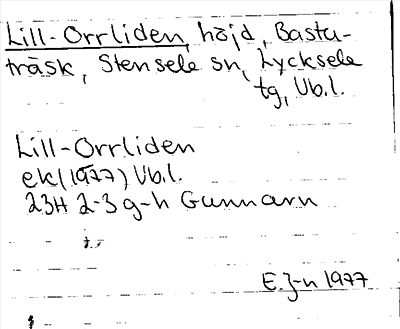 Lill-Orrliden, höjd, Bastu-
träsk, Stensele sn, Lycksele
tg, Vb.l.
Lill-Orrliden
ek (1977) Vb.l.
23H 2-3 g-h Gunnarn
E.J-n 1977